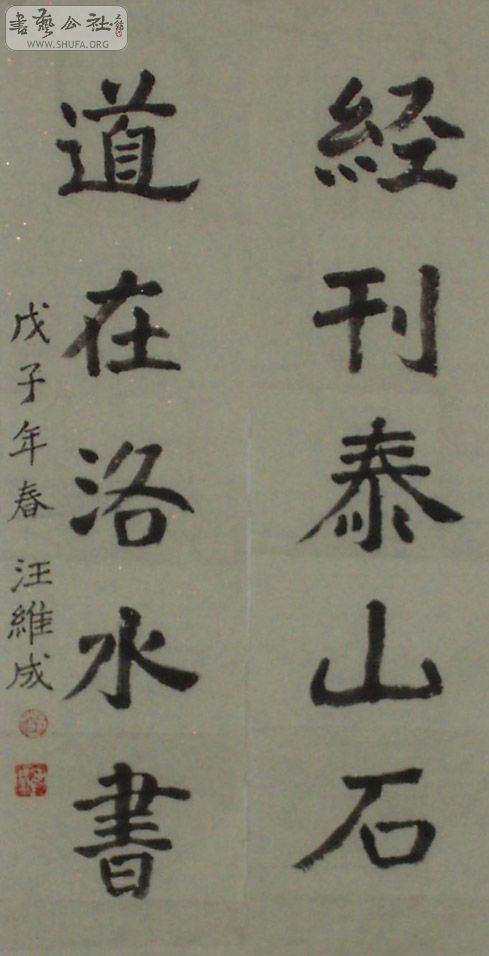 書藝公社
WWW.SHUFA.ORG
経刊泰山石
道在洛水書
戊子年春汪維成